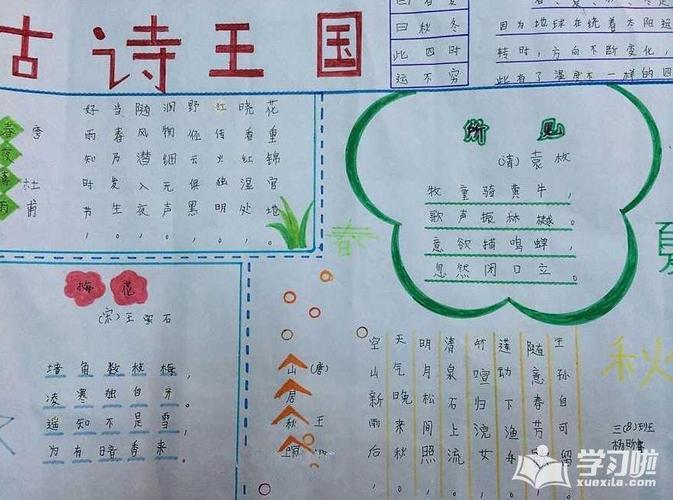 古诗王国
曰秋冬
此四时
运不穷
因为地球在绕着太阳运
转时，方向不断变化，
此有了温度不一样的四
春夜喜雨
唐 杜甫
好雨知时节，
当春乃发生。
随风潜入夜，
润物细无声。
野径云俱黑，
江船火独明。
晓看红湿处，
花重锦官城。
所见
(清)袁枚
牧童骑黄牛，
歌声振林樾。
意欲捕鸣蝉，
忽然闭口立。
春
夏
秋
梅花
(宋)王安石
墙角数枝梅，
凌寒独自开。
遥知不是雪，
为有暗香来。
山居秋暝
(唐)王维
空山新雨后，
天气晚来秋。
明月松间照，
清泉石上流。
竹喧归浣女，
莲动下渔舟。
随意春芳歇，
王孙自可留。
三(8)班
学习啦
xuexila.com